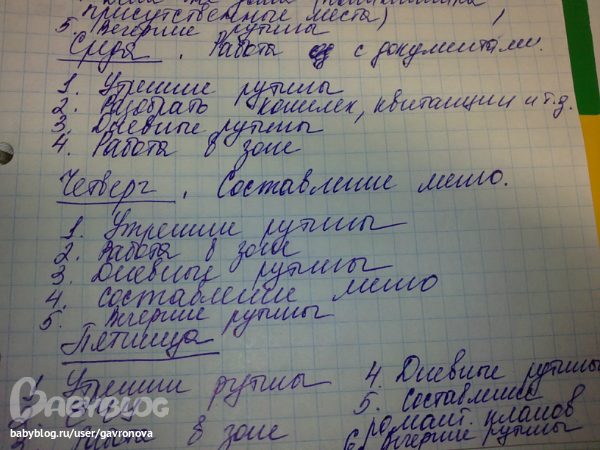 присутственные места)
5. Вечерние рутины
Среда. Работа с документами.
1. Утрешние рутины
2. Разобрать кошилек, квитанции и т.д.
3. Дневные рутины
4. Работа в зоне
Четверг. Составление меню.
1. Утрешние рутины
2. Работа в зоне
3. Дневные рутины
4. составление меню
5. Вечерние рутины
Пятница
1. Утрешнии рутины
2.
3. Работа в зоне
4. Дневные рутины
5. Составление
романт. планов
6. Вечерние рутины
BABYBLOG
babyblog.ru/user/gavronova